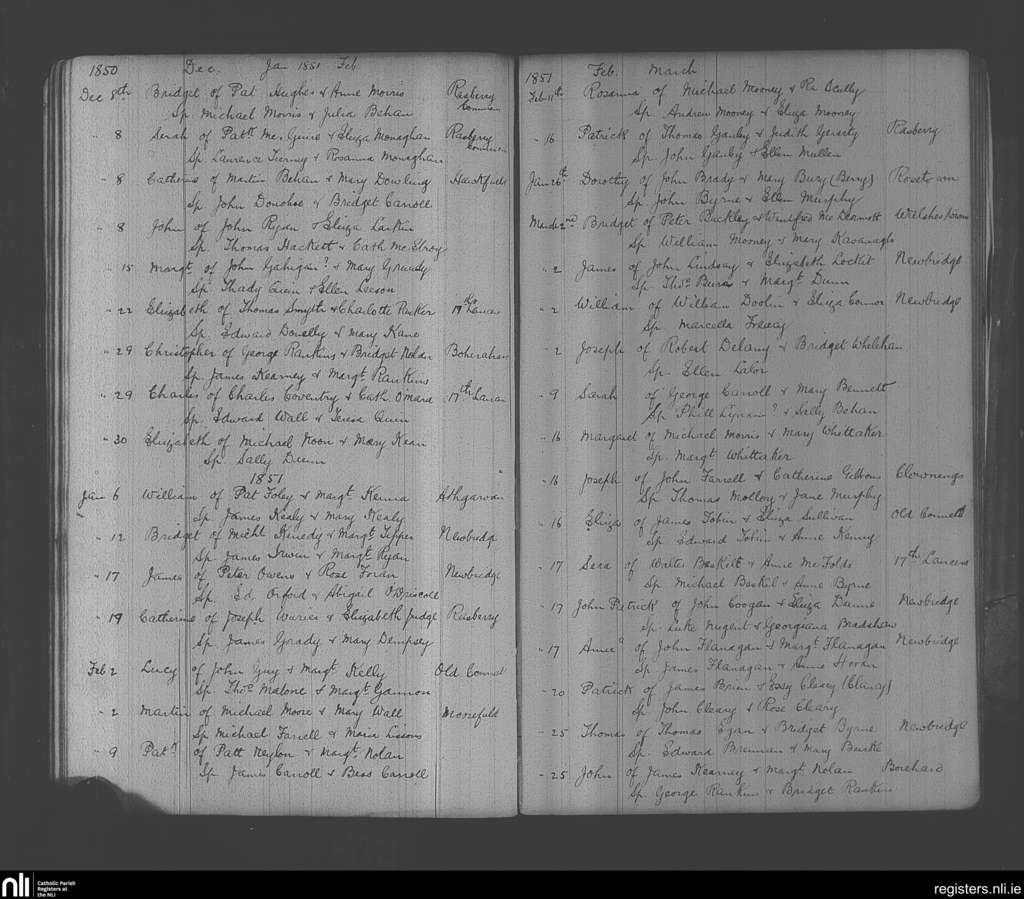 1850 Dec. Jan 1851 Feb
Dec 8th Bridget of Pat Hughes & Anne Morris Rasberry Common
Sp. Michael Morris & Julia Behan
" 8 Serah of Patt Mc. Guire & Eliza Monaghan Rasberry Common
Sp. Laurence Tierney & Rosanna Monaghan
" 8 Catherine of Martin Behan & Mary Dowling Hawkfield
Sp. John Donohoe & Bridget Carroll
" 8 John of John Ryan & Eliza Larkin
Sp. Thomas Hackett & Cath Mc.Elroy
" 15 Margt. of John Gahigan? & Mary
Sp. Thady Quin & Ellen Leeson
" 22 Elizabeth of Thomas Smyth & Charlotte Parker 17th Lancers
Sp. Edward Donelly & Mary Kane
" 29 Christopher of George Rankins & Bridget Nolan Boherahan
Sp. James Kearney & Margt. Rankins
" 29 Charles of Charles Coventry & Cath. Omara 17th
Sp. Edward Wall & Teresa Quin
" 30 Elizabeth of Michael Noon & Mary Kean
Sp. Sally Dunn
1851
Jan 6 William of Pat Foley & Margt. Kenna Athgarvan
Sp. James Kealy & Mary Kealy
" 12 Bridget of Michl. Kenedy & Margt. Tepper Newbridge
Sp. James Irwin & Margt. Ryan
" 17 James of Peter Owens & Rose Foran Newbridge
Sp. Ed. Orford & Abigail O'Driscole
" 19 Catherine of Joseph & Elizabeth Judge Rasberry
Sp. James Grady & Mary Dempsey
Feb 2 Lucy of John Guy & Margt. Kelly Old Connell
Sp. Thos. Malone & Margt. Gannon
" 2 Martin of Michael Moore & Mary Wall Moorefield
Sp. Michael Farrell & Maria Lissons
" 9 Patt. of Patt Neylon & Margt. Nolan
Sp. James Carroll & Bess Carroll
1851 Feb. March
Feb 11th Rosanna of Michael Mooney & Scully
Sp. Andrew Mooney & Eliza Mooney
" 16 Patrick of Thomas Ganly & Judith Geraty Rasberry
Sp. John Ganly & Ellen Mullen
Jan 26th Dorothy of John Brady & Mary Bury (Berry) Rosetown
Sp. John Byrne & Ellen Murphy
March 2nd Bridget of Peter Buckley & Winifred Mc Dermott
Sp. William Mooney & Mary Kavanagh
" 2 James of John Lindsay & Elizabeth Locket Newbridge
Sp. Thos. Burns & Margt. Dunn
" 2 William of William Doolin & Eliza Connor Newbridge
Sp. Marcella Freeny
" 2 Joseph of Robert Delany & Bridget Whelehan
Sp. Ellen Lalor
" 9 Sarah of George Carroll & Mary Bennett
Sp. Phill Lynam? & Sally Behan
" 16 Margaret of Michael Morris & Mary Whittaker
Sp. Margt. Whittaker
" 16 Joseph of John Farrell & Catherine Gibbons Clownengs
Sp. Thomas Molloy & Jane Murphy
" 16 Eliza of James Tobin & Eliza Sullivan Old Connell
Sp. Edward Tobin & Anne Kenny
" 17 Sera of Walter Beskitt & Anne Mc Folds 17th Lancers
Sp. Michael Beskil & Anne Byrne
" 17 John Patrick of John Coogan & Eliza Dunne Newbridge
Sp. Luke Nugent & Georgiana Bradshaw
" 17 Anne? of John Flanagan & Margt. Flanagan Newbridge
Sp. James Flanagan & Anne Horan
" 20 Patrick of James Brien & Essy Cleary (Clancy)
Sp. John Cleary & Rose Cleary
" 25 Thomas of Thomas Egan & Bridget Byrne Newbridge
Sp. Edward Brennan & Mary Burke
" 25 John of James Kearney & Margt. Nolan Borehard
Sp. George Rankins & Bridget Rankins
nli Catholic Parish
Registers at
the NLI
registers.nli.ie